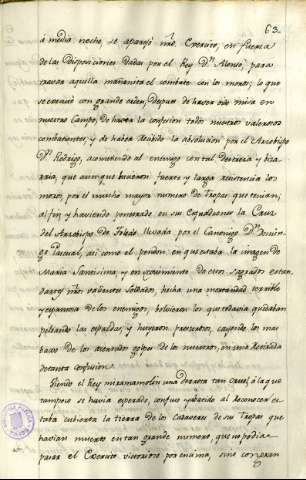 63.
á media noche, se aparejó ntro. Exercito, en fuerza
de las disposiciones dadas por el Rey Dn. Alonso, para
travar aquella mañanita el combate con los moros; lo que
se executó con grande orden, despues de haverse oido misa en
nuestro Campo, de haverse confesado todos nuestros valerosos
combatientes, y de haber recibido la absolucion por el Arzobispo
Dn. Rodrigo, acometiendo al enemigo con tal destreza y biza
rria, que aunque hicieron fuerte y larga resistencia los
moros por el mucho mayor numero de tropas que tenian,
al fin y haviendo penetrado en sus Esquadrones la Cruz
del Arzobispo de Toledo llevada por el Canonigo Dn. Domin
go Pasqual, asi como el pendon, en que estaba la imagen de
Maria Santisima, y en seguimiento de estos sagrados estan
dartes ntros. valerosos soldados, hecha una mortandad terrible
y espantosa de los enemigos, bolvieron los que todavia quedaban
peleando las espaldas, y huyeron presurosos, cayendo los mas
baxo de los acerados golpes de los nuestros, en una
de tanta confusion.
Viendo el Rey miramamolin una derrota tan cruel, á la que
tampoco se havia esperado, confuso y aburrido al reconocer es
taba cubierta la tierra de los Cadaveres de sus Tropas que
havian muerto en tan grande numero, que no podia
pasar el Exercito victorioso por encima, sino con gran